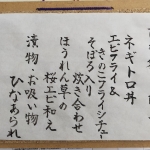 ネギトロ丼
エビフライ&
きのこフライシチュー
そぼろ入り
炊き合わせ
ほうれん草の
桜エビ和え
漬物・お吸い物
ひなあられ